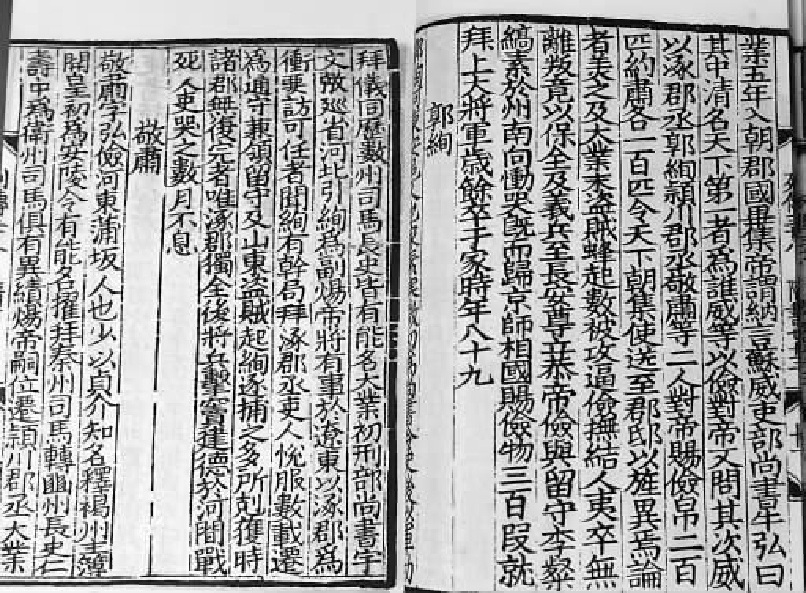 業五年入朝郡國畢集帝謂納言蘇威吏部尚書牛弘曰
其中清名天下第一者為誰威等以儉對帝又問其次威
以涿郡丞郭絢潁川郡丞敬肅等二人對帝賜儉帛二百
匹約肅各一百匹令天下朝集使送至郡邸以旌異焉論
者美之及大業末盜賊蜂起數被攻逼儉撫結人夷卒無
離叛竟以保全及義兵至長安尊立恭帝儉與留守李粲
縞素於州南向慟哭既而歸京師相國賜儉物三百段就
拜上大將軍歲餘卒于家時年八十九
郭絢
拜儀同歷數州司馬長史皆有能名大業初刑部尚書宇
文巡省河北引絢為副煬帝將有事於遼東以涿郡為
衝要訪可任者聞絢有幹局拜涿郡丞吏人悅服數載遷
為通守兼領留守及山東盜賊起絢逐捕之多所剋獲時
諸郡無復完者唯涿郡獨全後將兵擊竇建德於河間戰
死人吏哭之數月不息
敬肅
敬肅字弘儉河東蒲坂人也少以貞介知名釋褐州主簿
開皇初為安陵令有能名擢拜秦州司馬轉豳州長史仁
壽中為衛州司馬俱有異績煬帝嗣位遷潁川郡丞大業